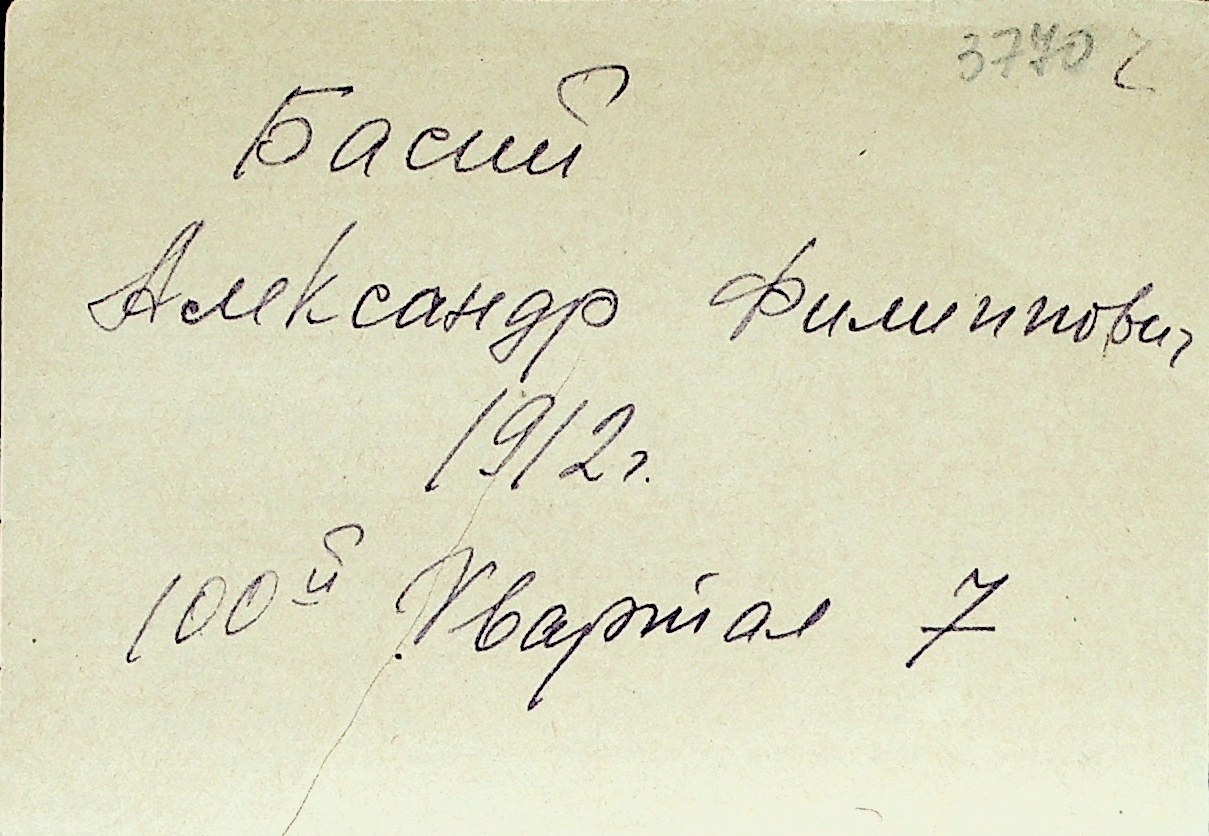 3770
Басий
Александр Филиппович
1912г.
100й Квартал 7